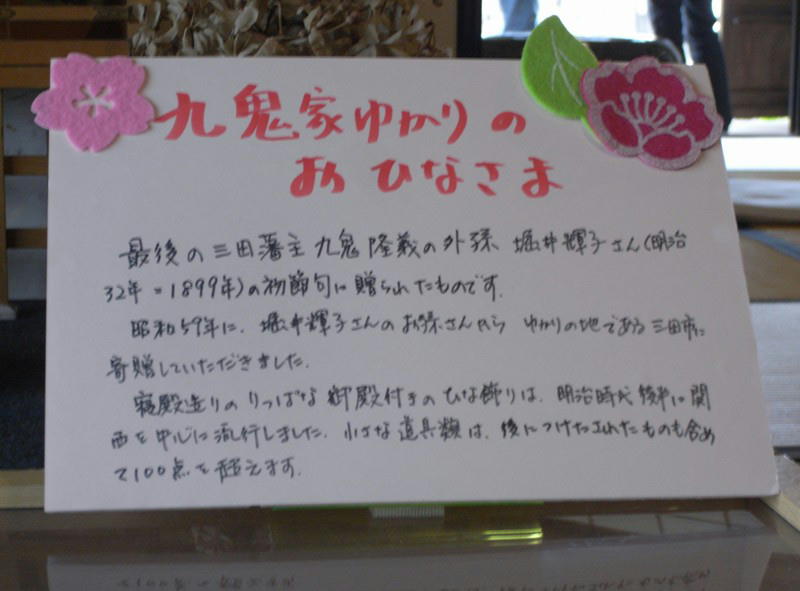 九鬼家ゆかりの
おひなさま
最後の三田藩主九鬼隆義の外孫 堀井輝子さん(明治
32年=1899年)の初節句に贈られたものです。
昭和59年に、堀井輝子さんのお孫さんから ゆかりの地である三田市に
寄贈していただきました。
寝殿造りのりっぱな御殿付きのひな飾りは、明治時代後半に関
西を中心に流行しました。小さな道具類は、後につけたされたものも含め
て100点を超えます。